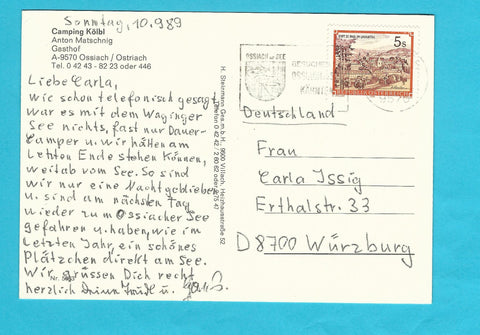 Sonntag, 10.9.89
Camping Kölbl
Anton Matschnig
Gasthof
A-9570 Ossiach / Ostriach
Tel. 0 42 43 - 82 23 oder 446
Liebe Carla,
wie schon telefonisch gesagt
war es mit dem Waginger
See nichts, fast nur Dauer-
Camper u. wir hätten am
letzten Ende stehen können,
weitab vom See. So sind
wir nur eine Nacht geblieben
u. sind am nächsten Tag
wieder zum Ossiacher See
gefahren u. haben, wie im
letzten Jahr, ein schönes
Plätzchen direkt am See.
Wir grüssen Dich recht
herzlich Deine
OSSIACH am SEE
5s
REPUBLIK ÖSTERREICH
Deutschland
Frau
Carla Issig
Erthalstr. 33
D 8700 Würzburg